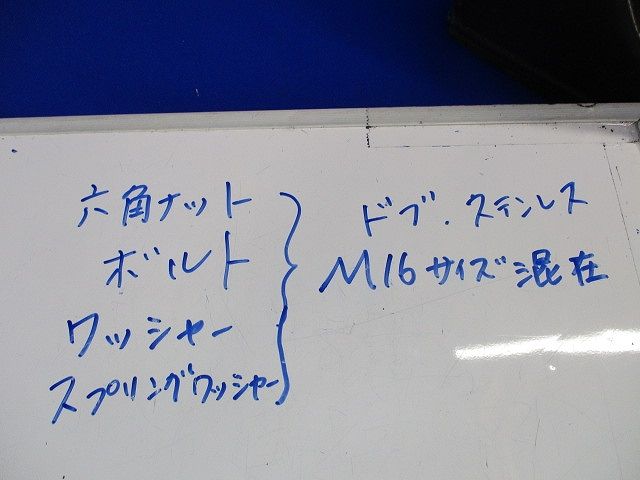 六角ナット
ボルト
ワッシャー
スプリングワッシャー
ドブ.ステンレス
M16サイズ混在